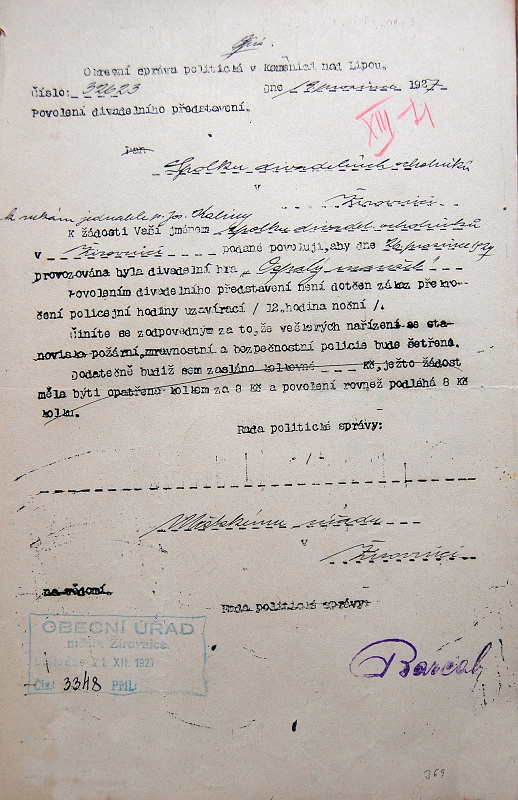 Okresní správa politická v Kamenici nad Lipou.
Číslo: 32623 Dne 1927
Povolení divadelního představení.
XIII-4
Pan
Spolku divadelních ochotníků
v
Žirovnici
k rukám jednatele p. Jos. Kaliny
K žádosti Vaší jménem Spolku divadel. ochotníků
v Žirovnici podané povoluji, aby dne prosince 1927
provozována byla divadelní hra „Ospalý
Povolením divadelního představení není dotčen zákaz překro-
čení policejní hodiny uzavírací / 12.hodina noční /.
Činíte se zodpovedným za to, že veškerých nařízení se sta-
noviska požární, mravnostní a bezpečnostní policie bude šetřeno.
Dodatečně budiž sem zasláno kolkovné Kč, ježto žádost
měla býti opatřena kolkem za 8 Kč a povolení rovněž podléhá 8 Kč
kolku.
Rada politické správy:
Městskému úřadu
v
Žirovnici
na vědomí.
Rada politické správy:
OBECNÍ ÚŘAD
města Žirovnice.
Došlo dne 21. XII. 1927
Čís. 3348 Příl.
J69